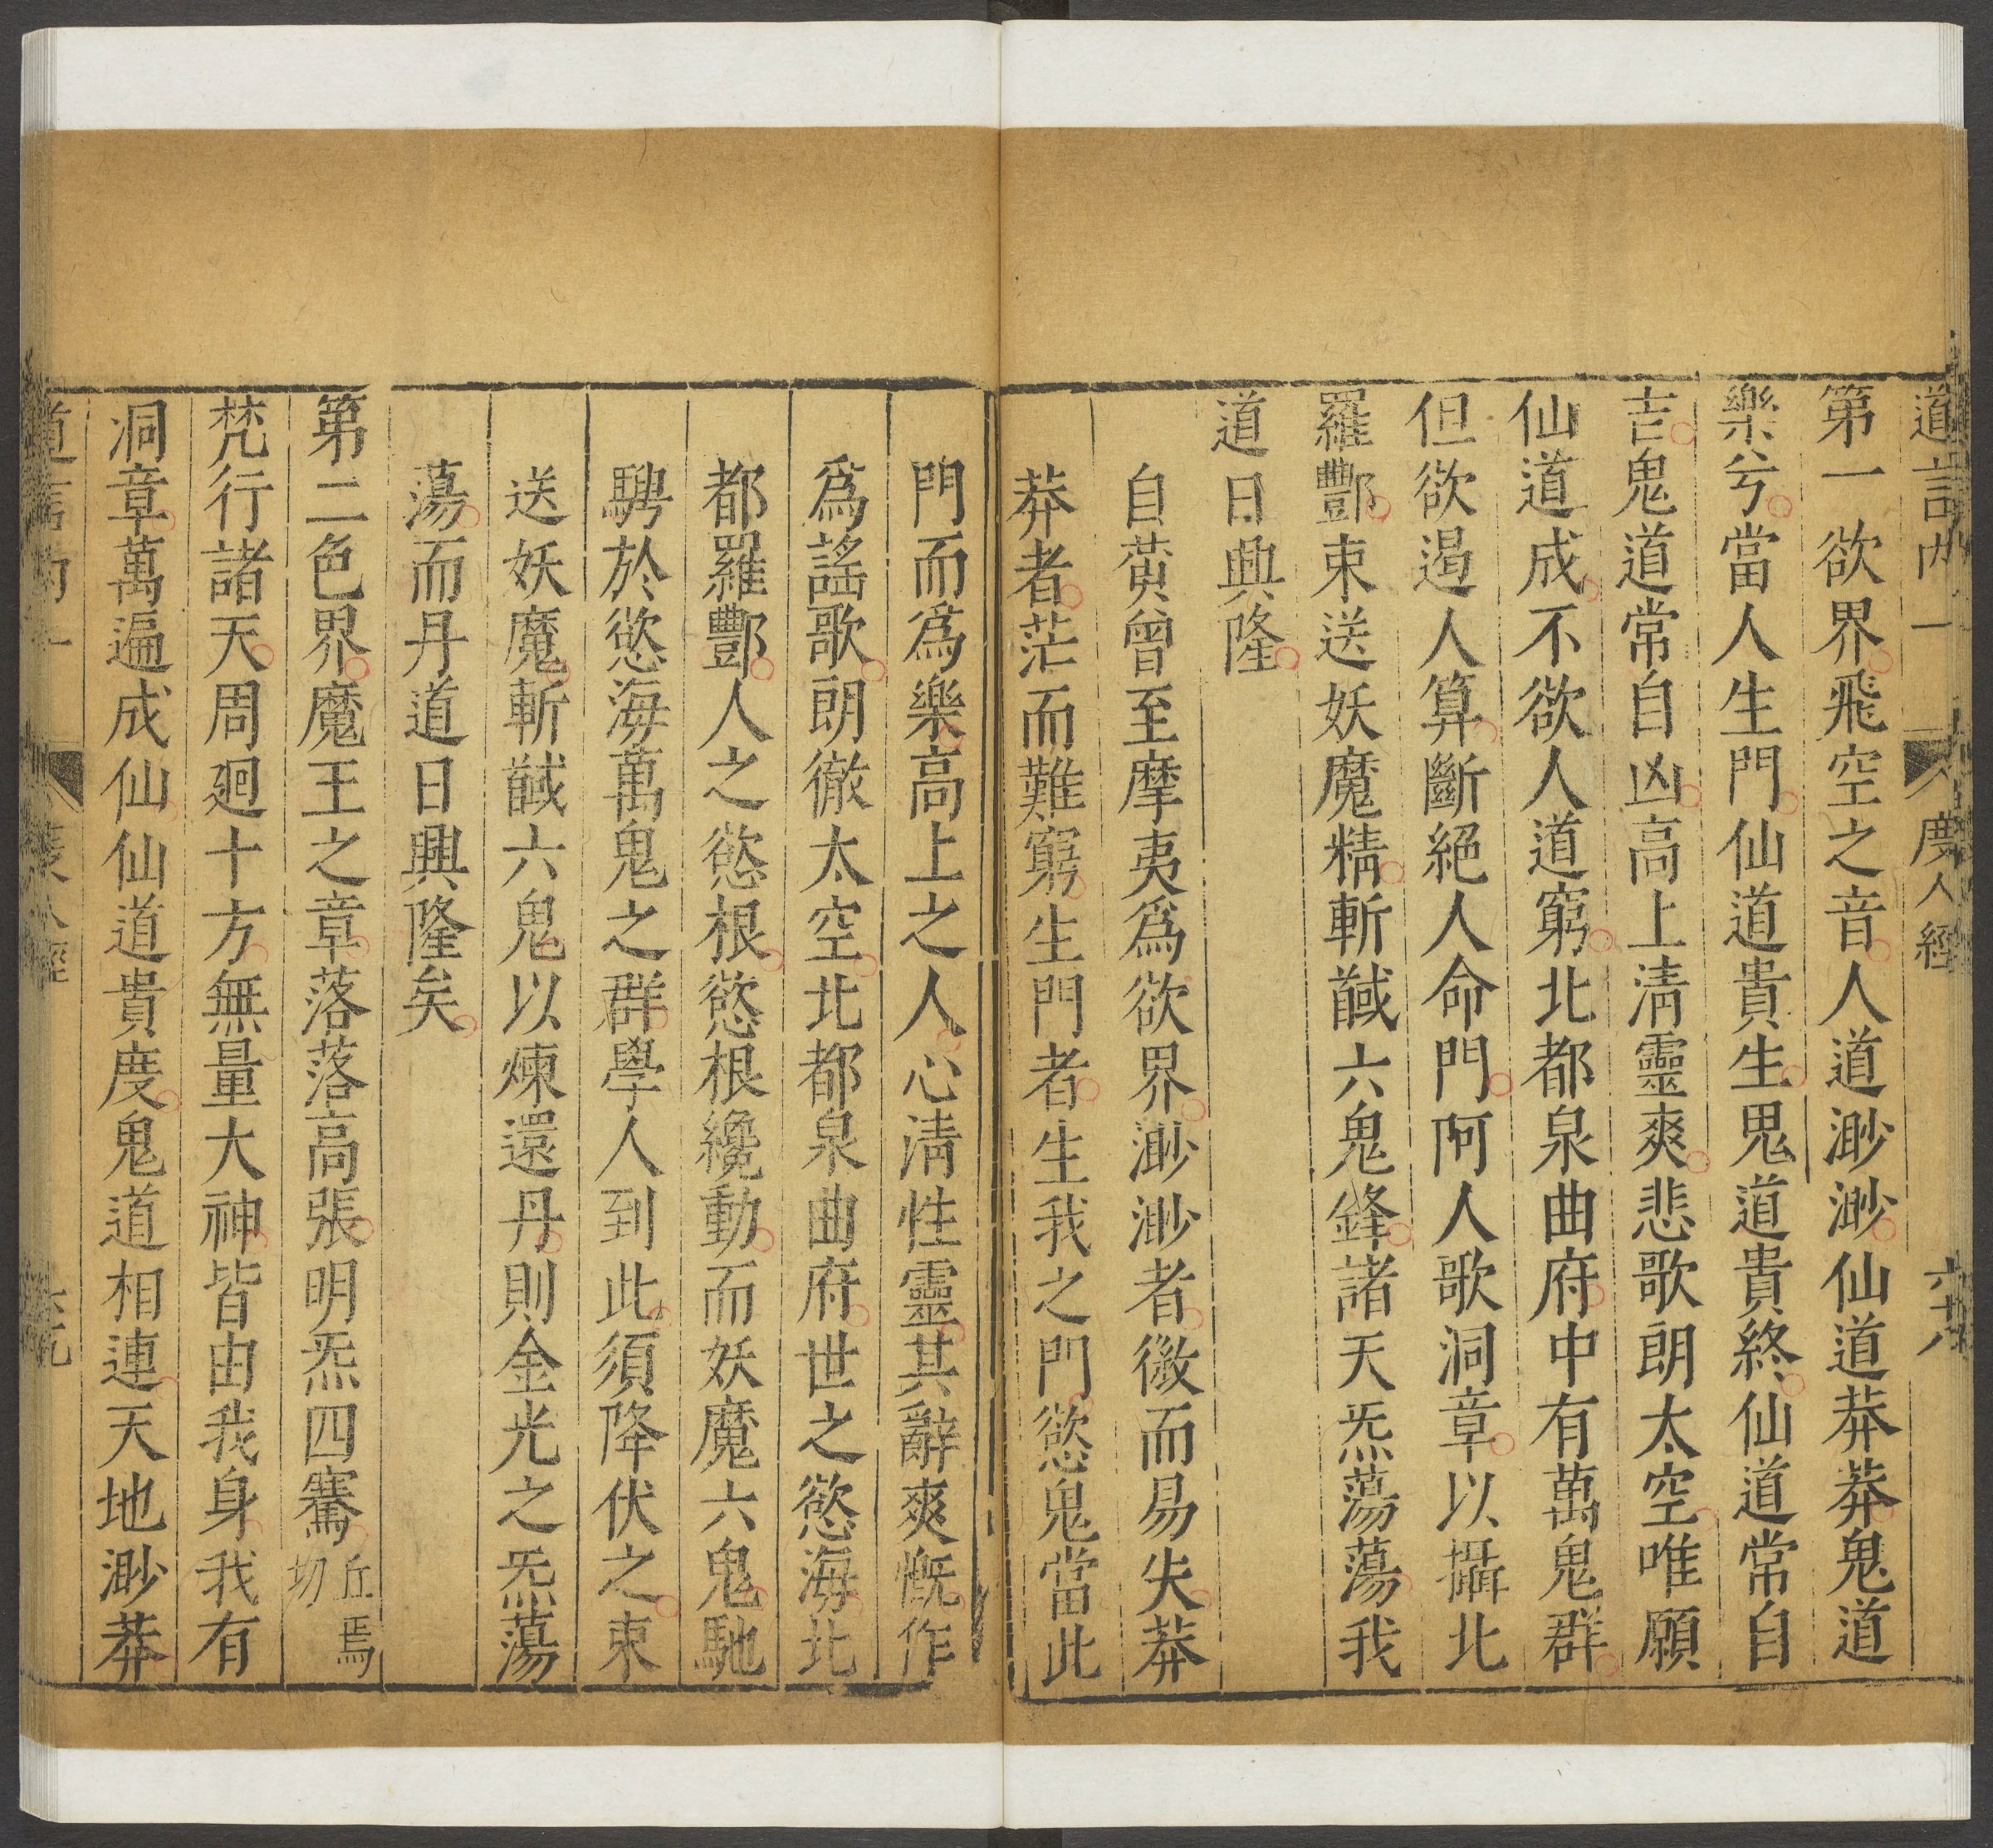 道言內一 度人經 六十八
第一欲界飛空之音人道渺渺仙道莽莽鬼道
樂兮當人生門仙道貴生鬼道貴終仙道常自
吉鬼道常自凶高上清靈爽悲歌朗太空唯願
仙道成不欲人道窮北都泉曲府中有萬鬼群
但欲遏人算斷絕人命門阿人歌洞章以攝北
羅酆束送妖魔精斬馘六鬼鋒諸天炁蕩蕩我
道日興隆
自黃曾至摩夷爲欲界渺渺者微而易失莽
莽者茫而難窮生門者生我之門慾鬼當此
門而爲樂高上之人心清性靈其辭爽慨作
爲謠歌朗徹太空北都泉曲府世之慾海北
都羅酆人之慾根慾根纔動而妖魔六鬼馳
騁於慾海萬鬼之群學人到此須降伏之束
送妖魔斬馘六鬼以煉還丹則金光之炁蕩
蕩而丹道日興隆矣
第二色界魔王之章落落高張明炁四騫丘焉切
梵行諸天周廻十方無量大神皆由我身我有
洞章萬遍成仙仙道貴度鬼道相連天地渺莽